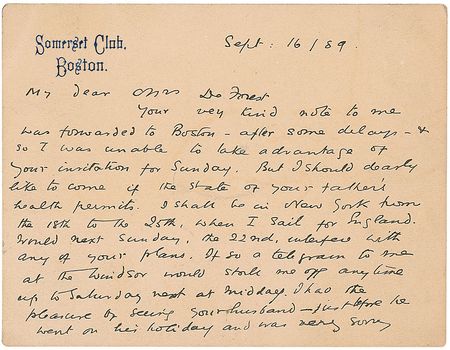 Somerset Club,
Boston.
Sept: 16/89.
My dear Mrs De Forest
Your very kind note to me
was forwarded to Boston - after some delays - &
so I was unable to take advantage of
your invitation for Sunday. But I should dearly
like to come if the state of your father's
health permits. I shall be in New York from
the 18th to the 25th, when I sail for England.
Would next Sunday, the 22nd, interfere with
any of your plans. If so a telegram to me
at the Windsor would stall me off anytime
up to Saturday next at midday. I had the
pleasure of seeing your husband - just before he
went on his holiday and was very sorry